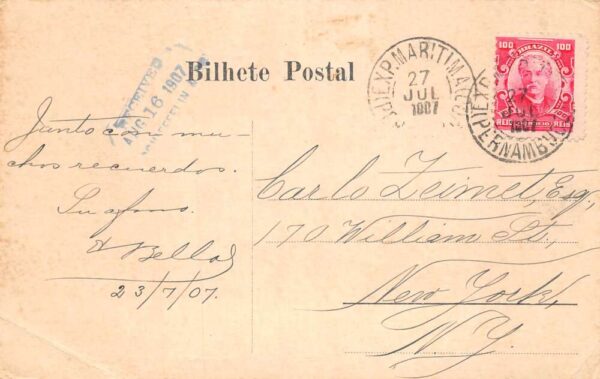 RECEIVED
AUG 16 1907
Bilhete Postal
EXP. MARITIMA
27
JUL
1907
100 BRAZIL 100
REIS REIS
27
JUL
1907
PERNAMBUCO
Junto con mu-
chos recuerdos.
Su afmo.
Bellas
23/7/07.
Carlo Zeimet, Esq.,
170 William St.,
New York,
N.Y.